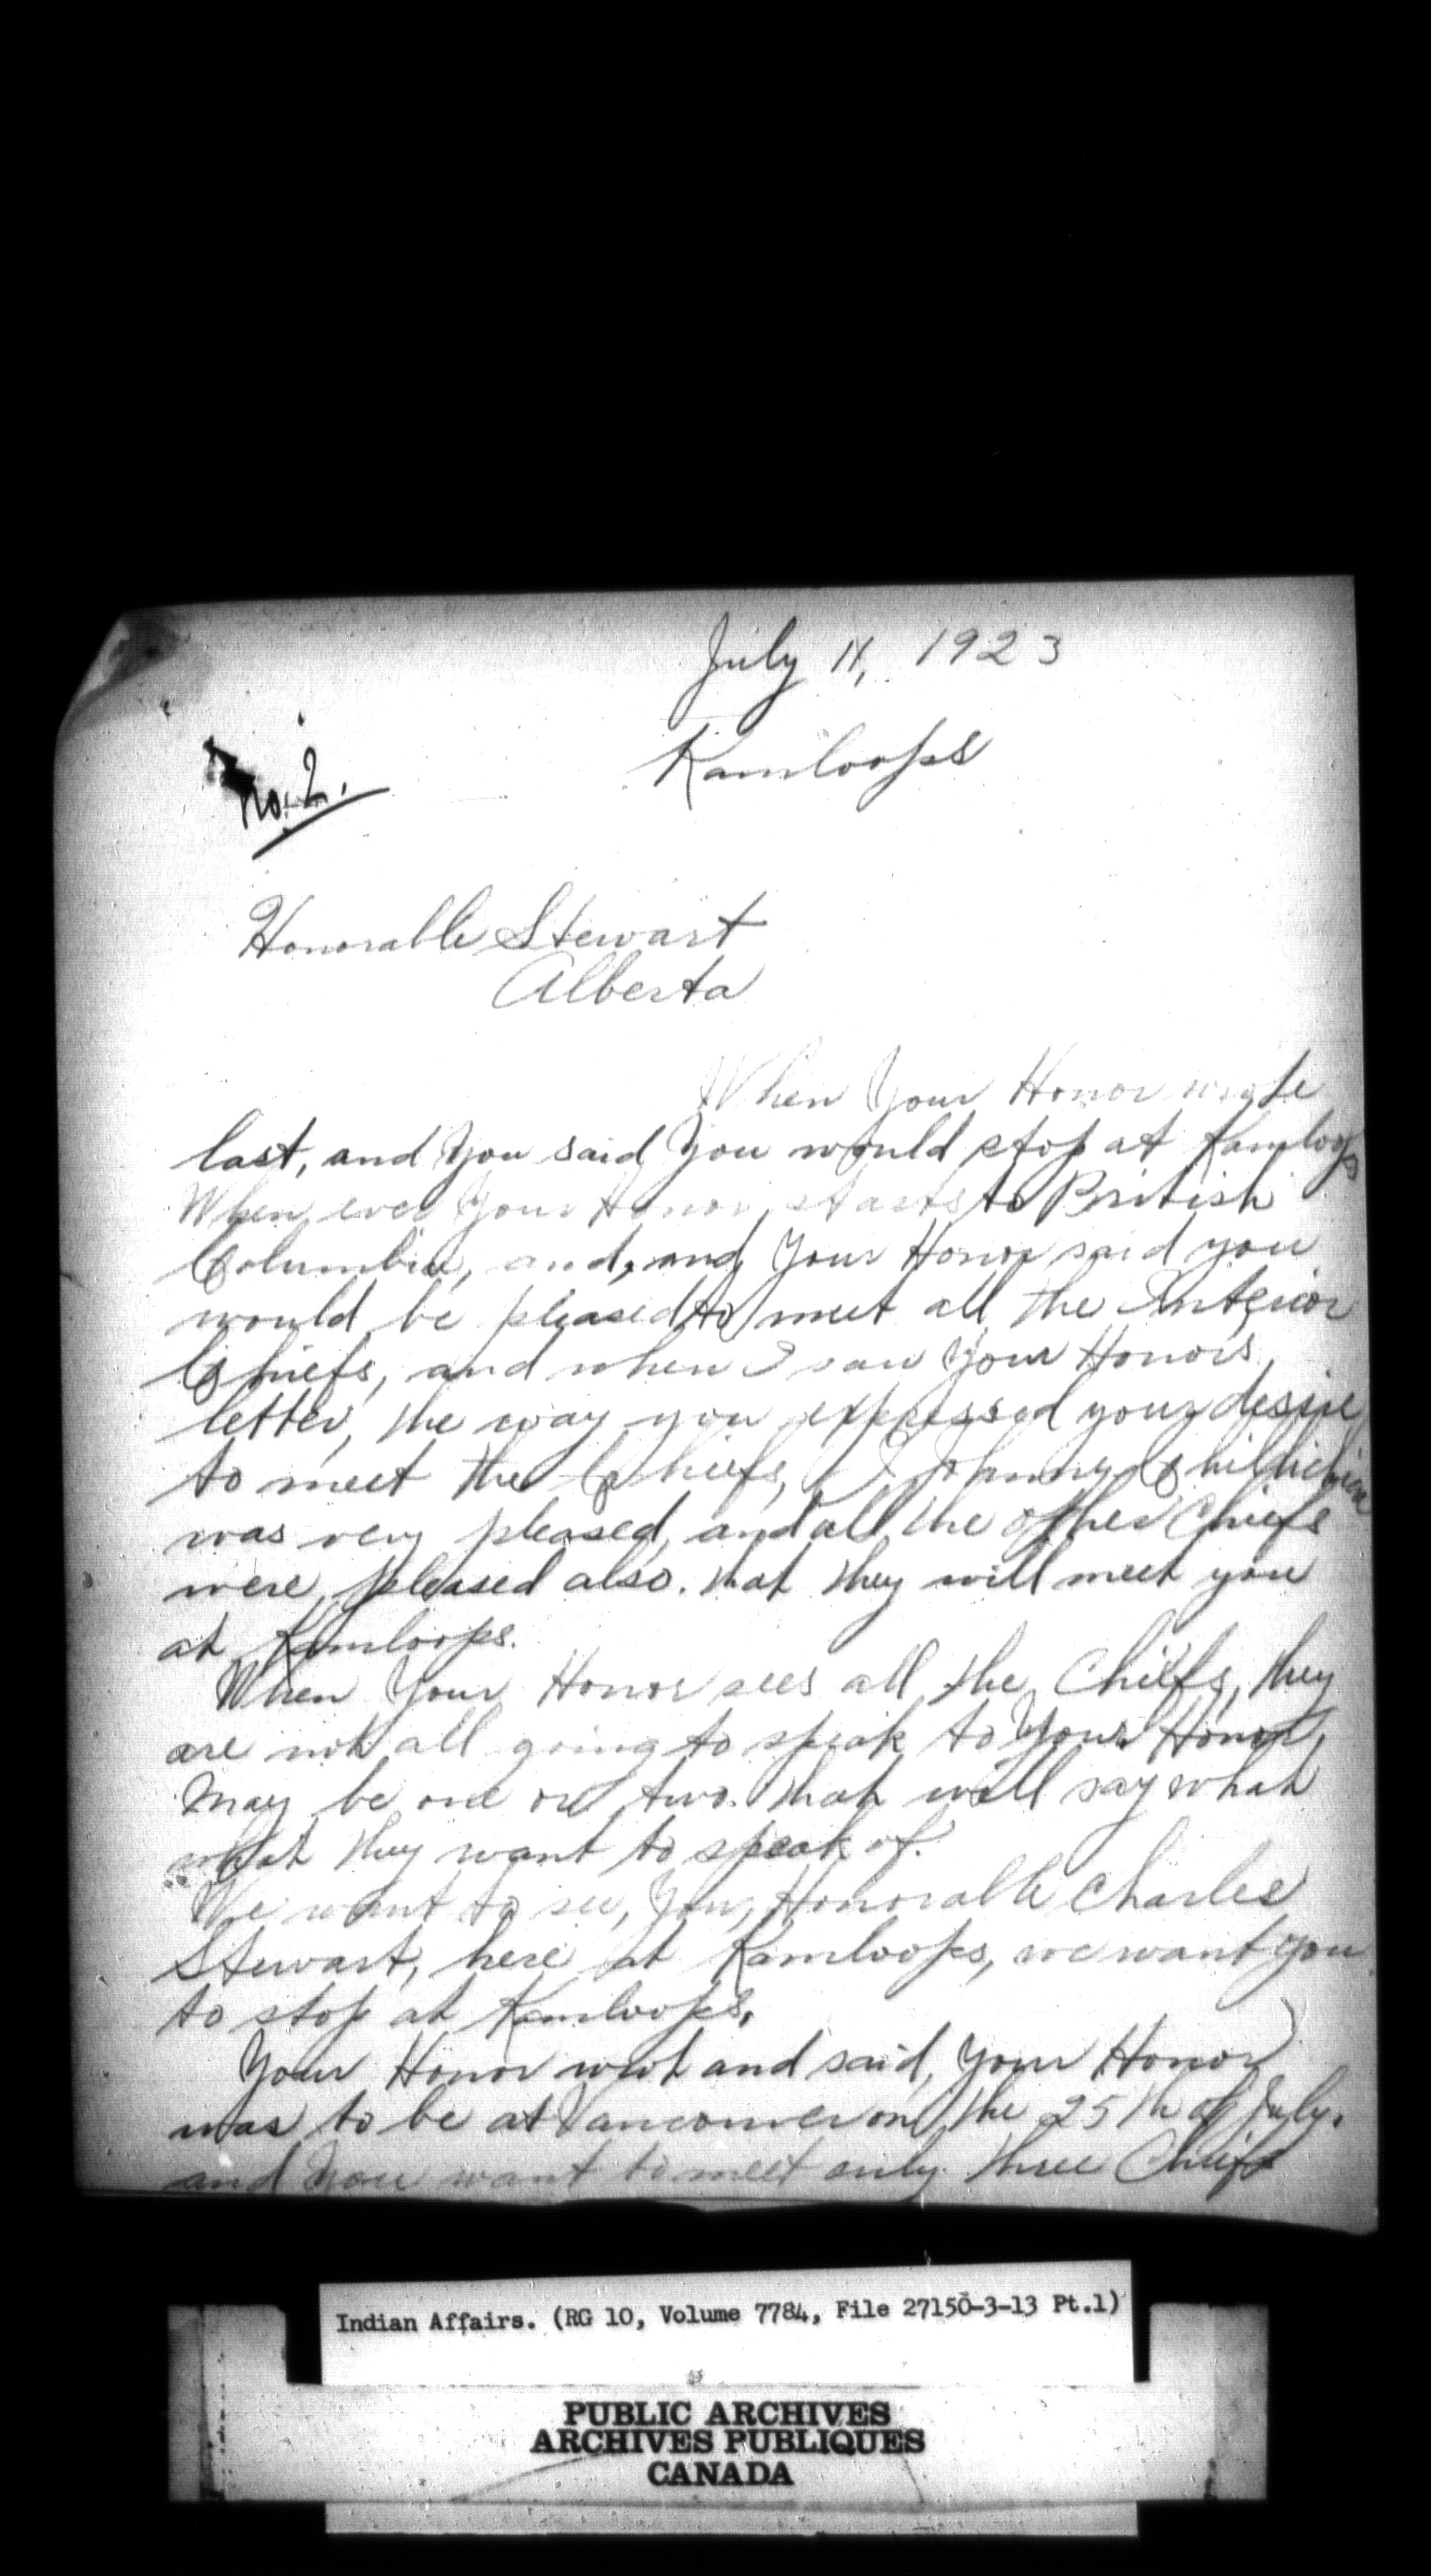 July 11, 1923
Kamloops
No. 2.
Honorable Stewart
Alberta
When Your Honor wrote
last, and You said You would stop at Kamloops
When ever Your Honor starts to British
Columbia, and, and, Your Honor said you
would be pleased to meet all the Interior
Chiefs, and when I saw Your Honors
letter, the way you expressed your desire
to meet the Chiefs, I, Johnny Chillihitzia
was very pleased, and all the other Chiefs
were pleased also. that they will meet you
at Kamloops.
When Your Honor sees all the Chiefs, they
are not all going to speak to Your Honor,
may be one or two. that will say what
what they want to speak of.
We want to see, You, Honorable Charles
Stewart, here at Kamloops, we want you
to stop at Kamloops.
Your Honor and said, Your Honor
was to be at Vancouver on the 25th of July.
and You want to meet only three Chiefs
Indian Affairs. (RG 10, Volume 7784, File 27150-3-13 Pt.1)
PUBLIC ARCHIVES
ARCHIVES PUBLIQUES
CANADA